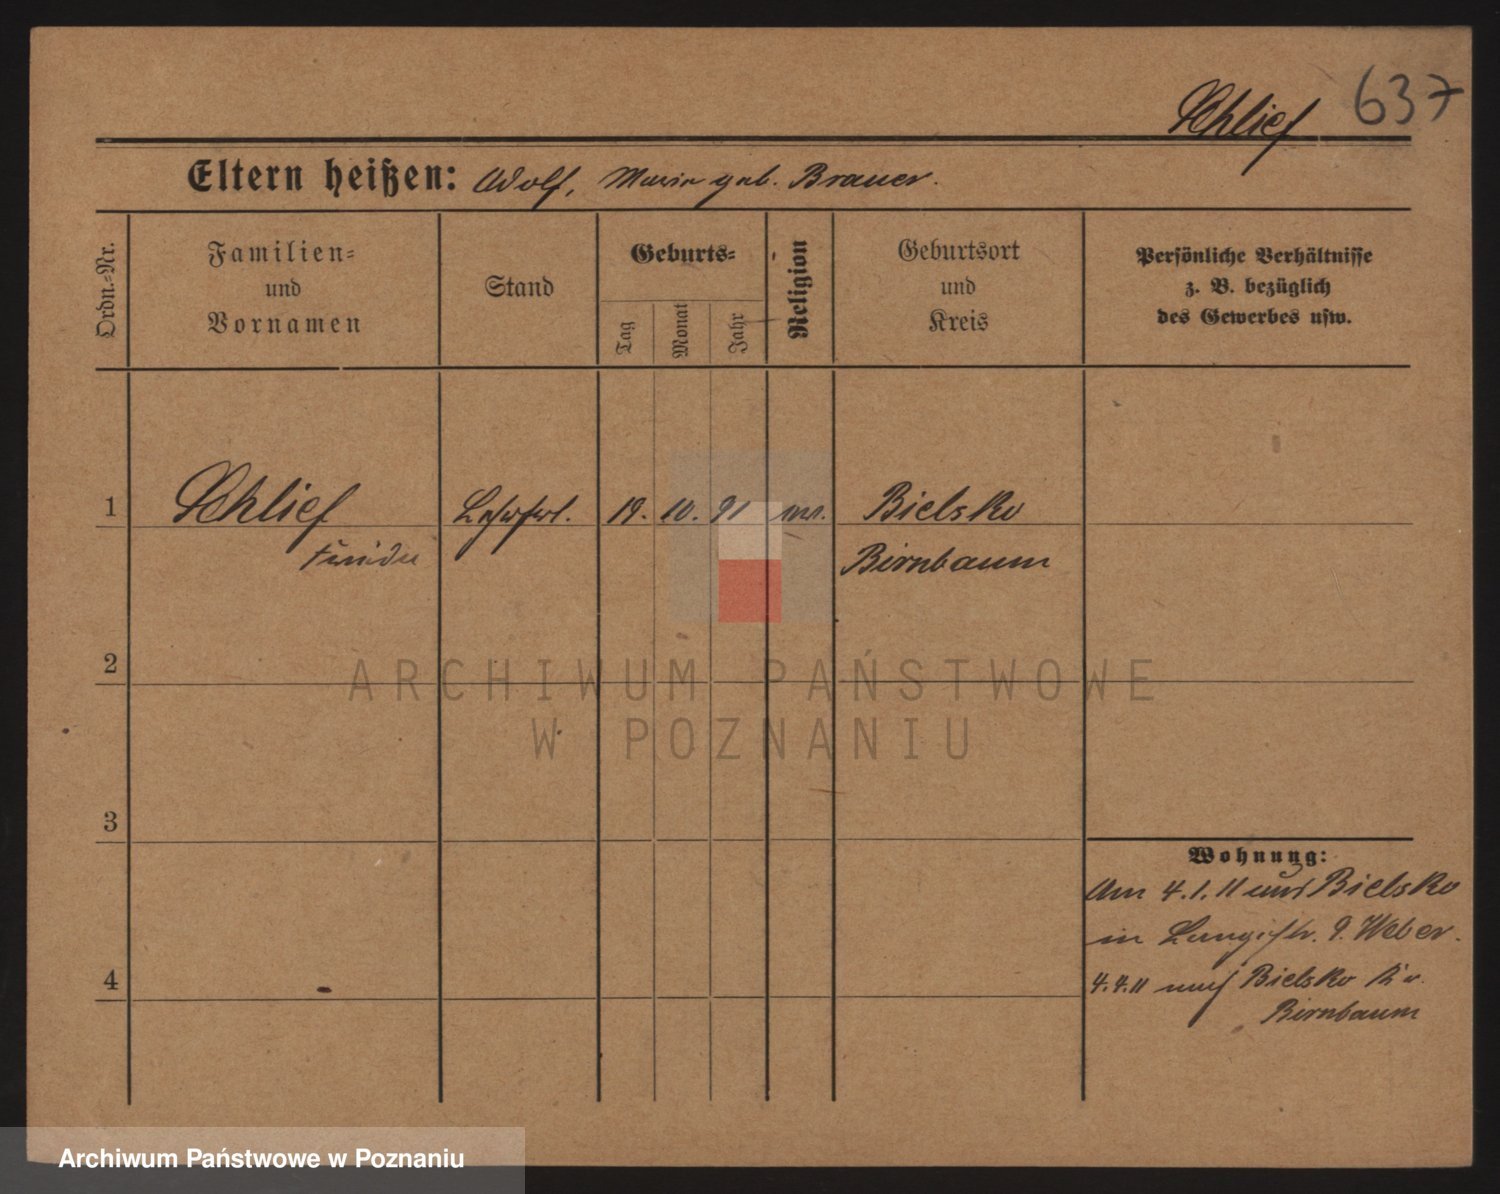 Schlief 637
Eltern heißen: Adolf, Maria geb. Brauer.
Ordn.-Nr.
Familien-
und
Vornamen
Stand
Geburts-
Tag
Monat
Jahr
Religion
Geburtsort
und
Kreis
Persönliche Verhältnisse
z. B. bezüglich
des Gewerbes usw.
1 Schlief 19. 10. 91 Bielsko
Birnbaum
2
ARCHIWUM PAŃSTWOWE
W POZNANIU
3
Wohnung:
Am 4.1.11 aus Bielsko
in Langestr. 9. Weber.
4
4.4.11 nach Bielsko Kr.
Birnbaum
Archiwum Państwowe w Poznaniu